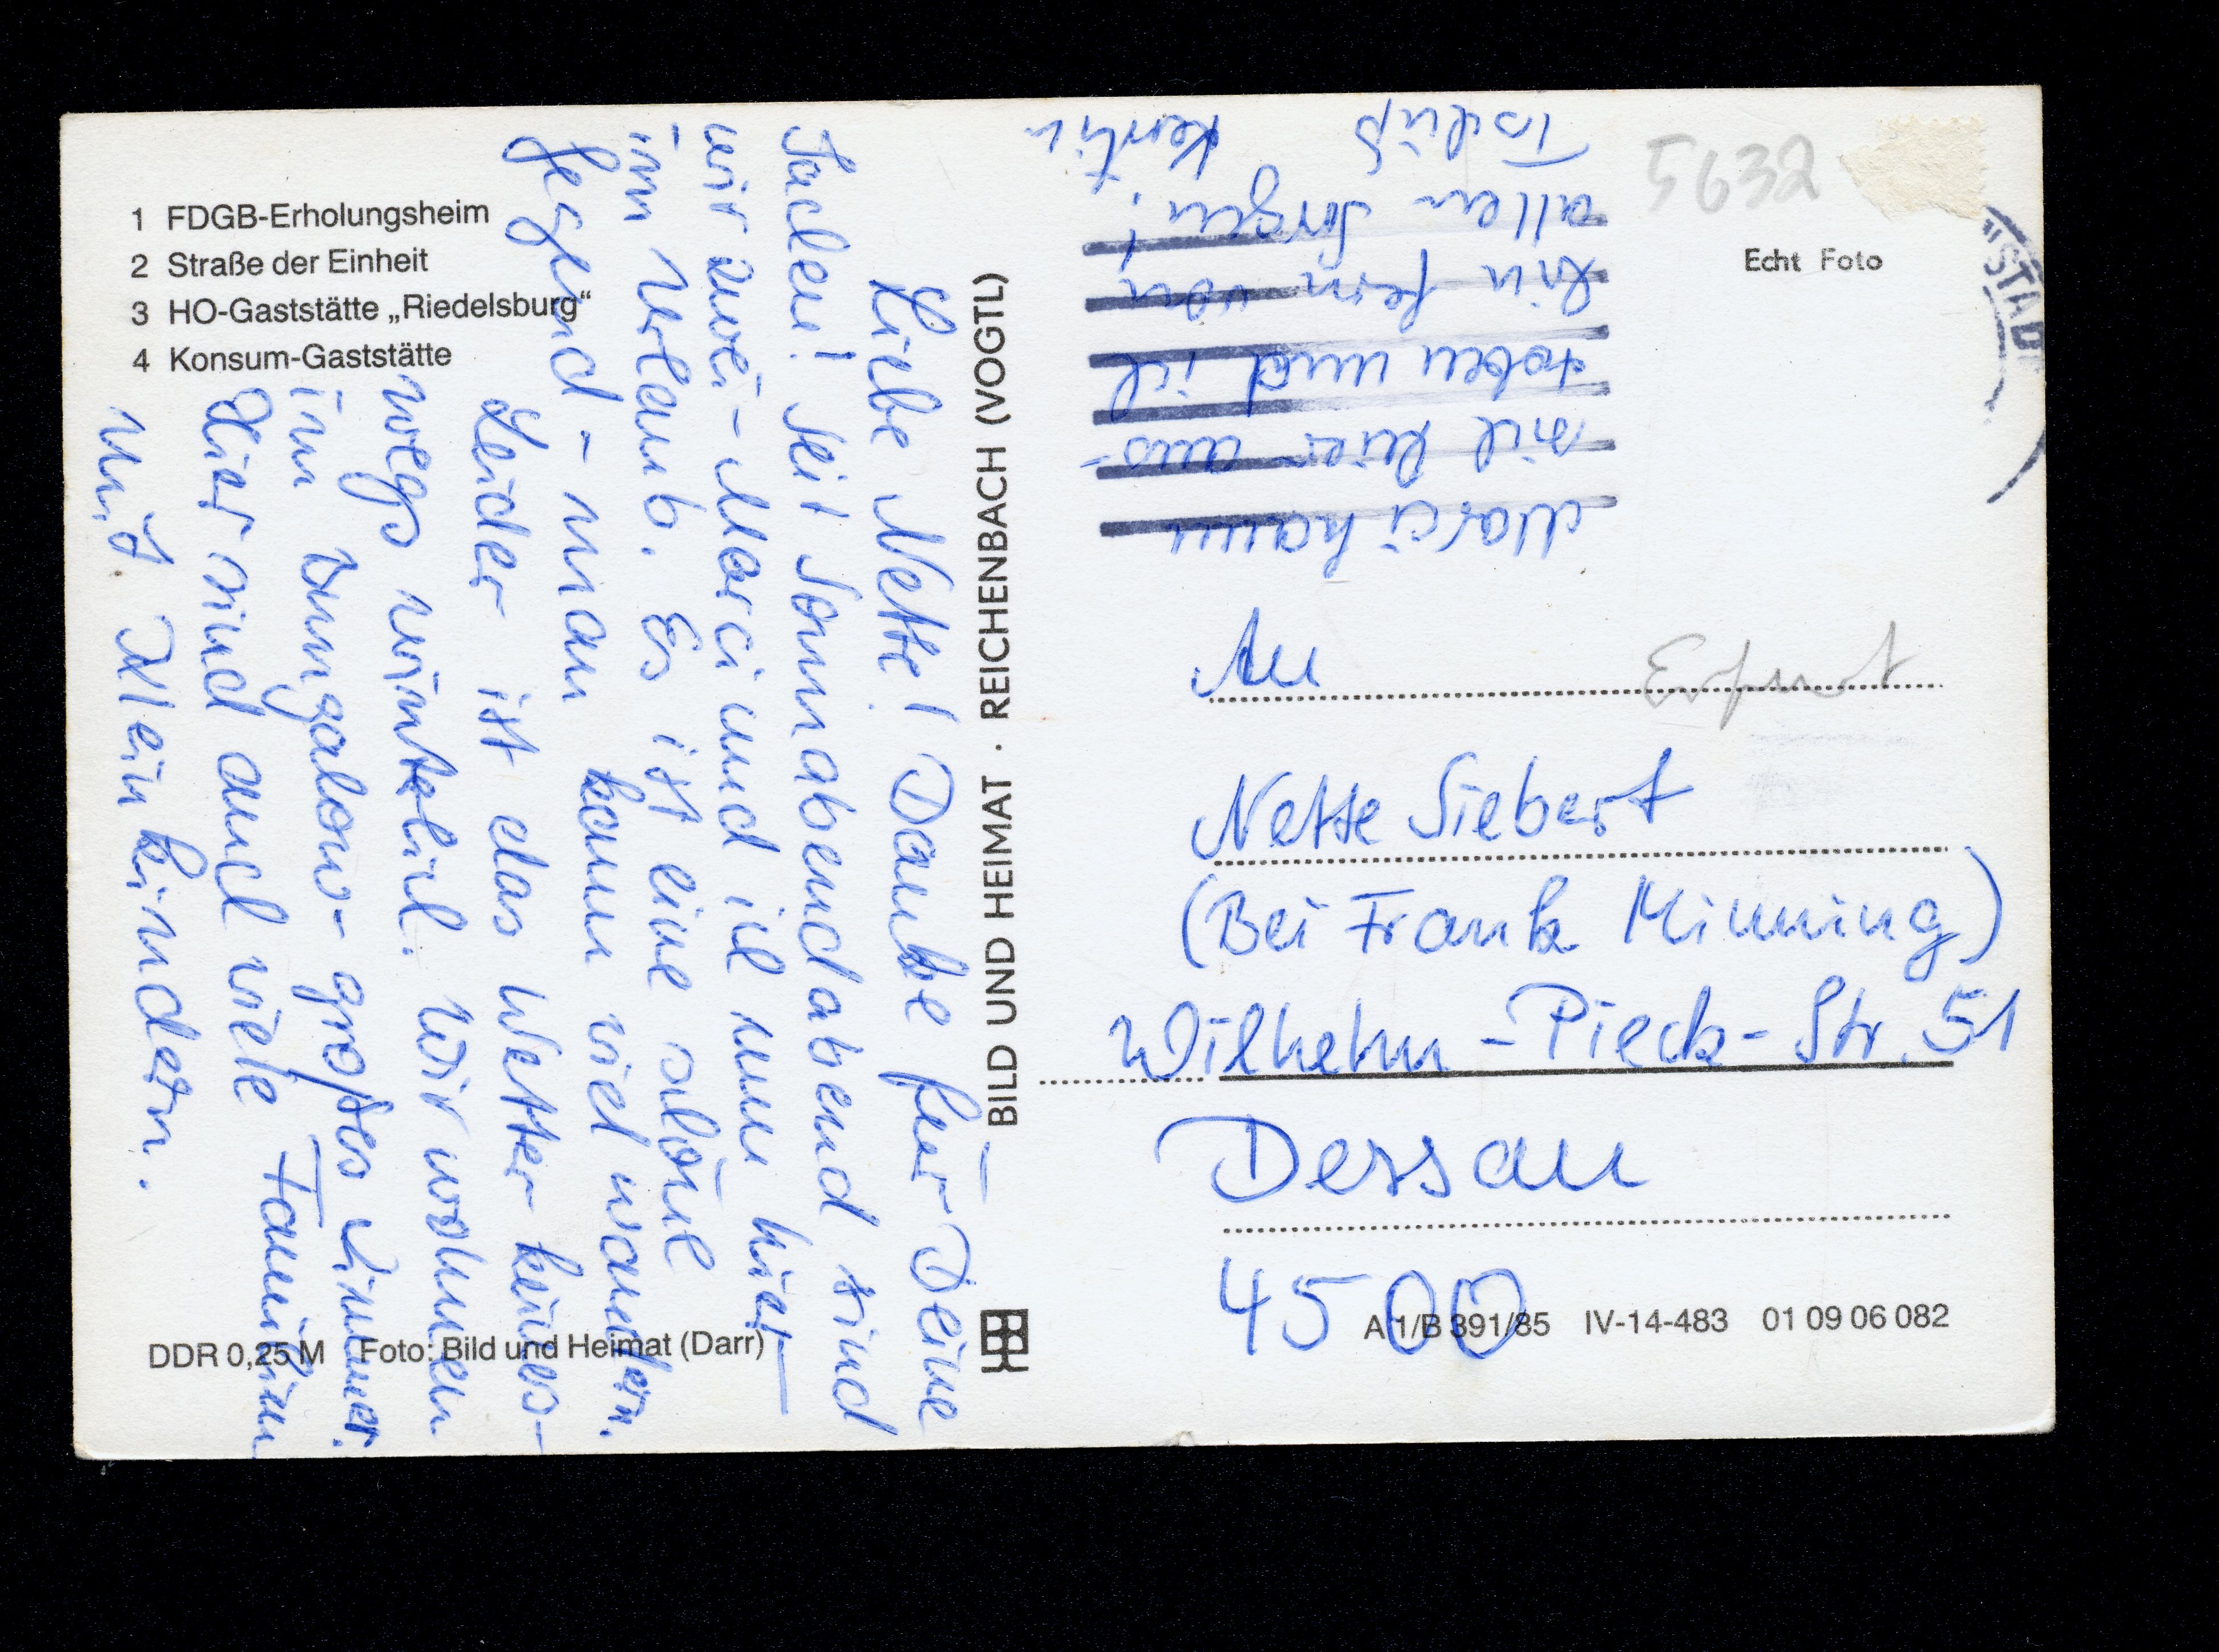 1 FDGB-Erholungsheim
2 Straße der Einheit
3 HO-Gaststätte „Riedelsburg“
4 Konsum-Gaststätte
Liebe Nette! Danke für Deine
Sachen! Seit Sonnabendabend sind
wir zwei - Marci und ich nun hier
im Urlaub. Es ist eine schöne
Gegend - man kann viel wandern.
Leider ist das Wetter keines-
wegs winterlich. Wir wohnen
im bungalow-großes Zimmer.
Hier sind auch viele Familien
mit Kleinkindern.
Marci kann
sich hier aus-
toben und ich
bin fern von
allen Sorgen!
Tschüß Kerstin
DDR 0,25 M Foto: Bild und Heimat (Darr)
BILD UND HEIMAT · REICHENBACH (VOGTL)
5632
Echt Foto
STAD
An
Erfurt
Nette Siebert
(Bei Frank Minning)
Wilhelm-Pieck-Str. 51
Dessau
4500
A 1/B 391/85 IV-14-483 01 09 06 082